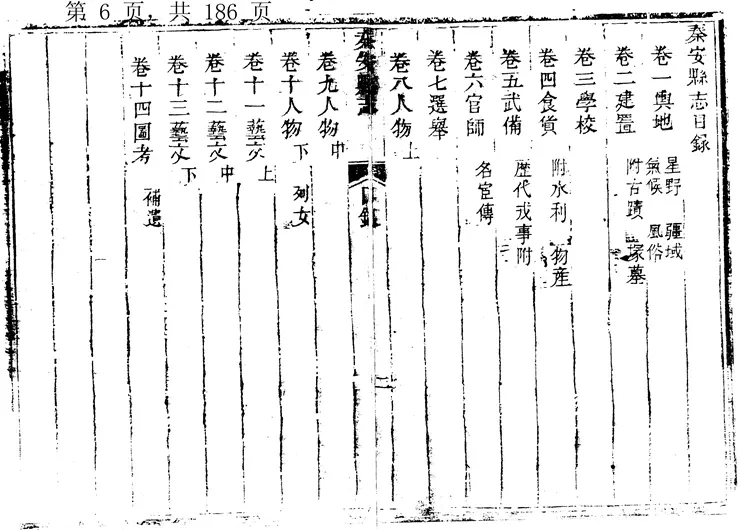 第 6 页, 共 186 页
秦安縣志目錄
卷一輿地 星野 疆域 氣候 風俗
卷二建置 附古蹟 塚墓
卷三學校
卷四食貨 附水利 物產
卷五武備 歷代戎事附
卷六官師 名宦傳
卷七選舉
卷八人物上
秦安縣志 目錄 二
卷九人物中
卷十人物下 列女
卷十一藝文上
卷十二藝文中
卷十三藝文下
卷十四圖考 補遺